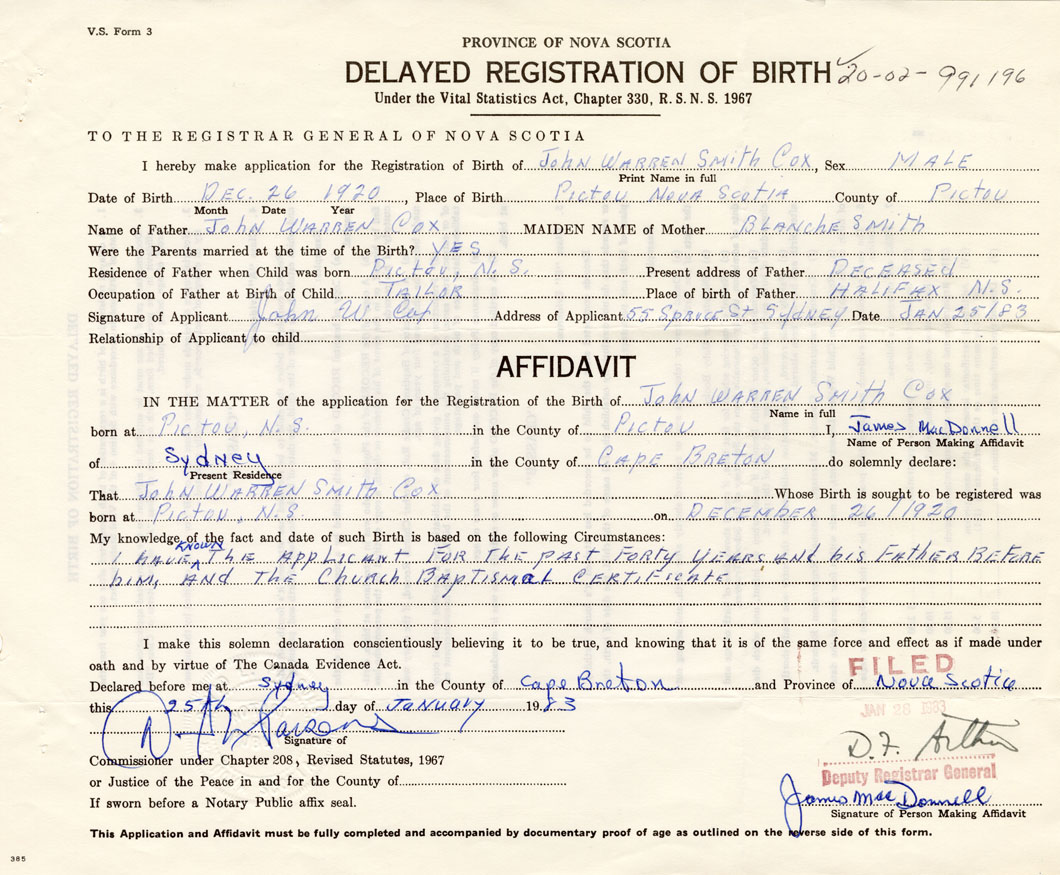 V.S. Form 3
PROVINCE OF NOVA SCOTIA
DELAYED REGISTRATION OF BIRTH 20-02-991196
Under the Vital Statistics Act, Chapter 330, R.S.N.S. 1967
TO THE REGISTRAR GENERAL OF NOVA SCOTIA
I hereby make application for the Registration of Birth of John Warren Smith Cox, Sex Male
Print Name in full
Date of Birth Dec. 26 1920, Place of Birth Pictou Nova Scotia County of Pictou
Month Date Year
Name of Father John Warren Cox MAIDEN NAME of Mother Blanche Smith
Were the Parents married at the time of the Birth? Yes
Residence of Father when Child was born Pictou, N.S. Present address of Father Deceased
Occupation of Father at Birth of Child Tailor Place of birth of Father Halifax N.S.
Signature of Applicant John W Cox Address of Applicant 55 Spruce St Sydney Date Jan 25/83
Relationship of Applicant to child
AFFIDAVIT
IN THE MATTER of the application for the Registration of the Birth of John Warren Smith Cox
Name in full
born at Pictou, N.S. in the County of Pictou I, James MacDonnell
Name of Person Making Affidavit
of Sydney in the County of Cape Breton do solemnly declare:
Present Residence
That John Warren Smith Cox Whose Birth is sought to be registered was
born at Pictou, N.S. on December 26/1920
My knowledge of the fact and date of such Birth is based on the following Circumstances:
I have known the applicant for the past forty years and his father before
him, and the Church Baptismal Certificate
I make this solemn declaration conscientiously believing it to be true, and knowing that it is of the same force and effect as if made under
oath and by virtue of The Canada Evidence Act.
FILED
Declared before me at Sydney in the County of Cape Breton and Province of Nova Scotia
this 25th day of January 1983
JAN 28 1983
Signature of
D.F. Arthur
Commissioner under Chapter 208, Revised Statutes, 1967
Deputy Registrar General
or Justice of the Peace in and for the County of
James MacDonnell
If sworn before a Notary Public affix seal.
Signature of Person Making Affidavit
This Application and Affidavit must be fully completed and accompanied by documentary proof of age as outlined on the reverse side of this form.
385